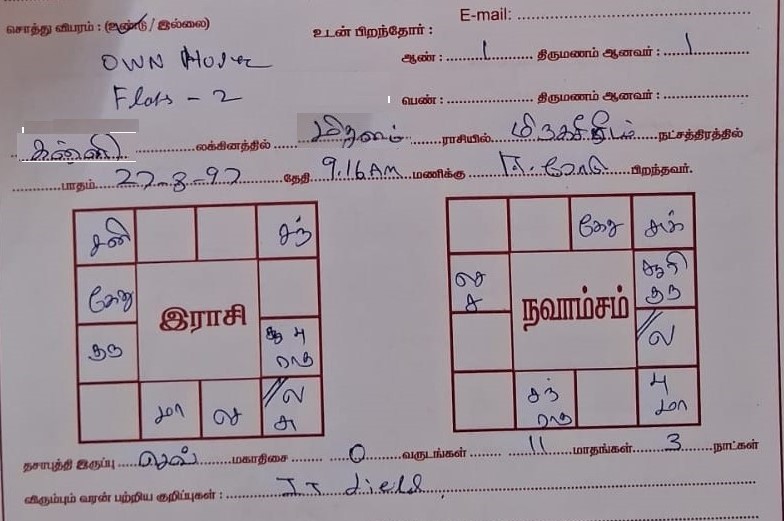 E-mail:
சொத்து விபரம் : (உண்டு / இல்லை) உடன் பிறந்தோர் :
OWN House ஆண் : 1 திருமணம் ஆனவர் : 1
Flats - 2 பெண் : திருமணம் ஆனவர் :
கன்னி லக்கினத்தில் மிதுனம் ராசியில் மிருகசீரிடம் நட்சத்திரத்தில்
பாதம் 27-8-97 தேதி 9.16 AM மணிக்கு பிறந்தவர்.
சனி சந் கேது சுக்
கேது ல சூரி
ச குரு
குரு இராசி சூ பு நவாம்சம் ல
ராகு
மா ல சந் பு
சு ராகு மா
தசாபுத்தி இருப்பு செவ் மகாதிசை 0 வருடங்கள் 11 மாதங்கள் 3 நாட்கள்
விரும்பும் வரன் பற்றிய குறிப்புகள் : IT field